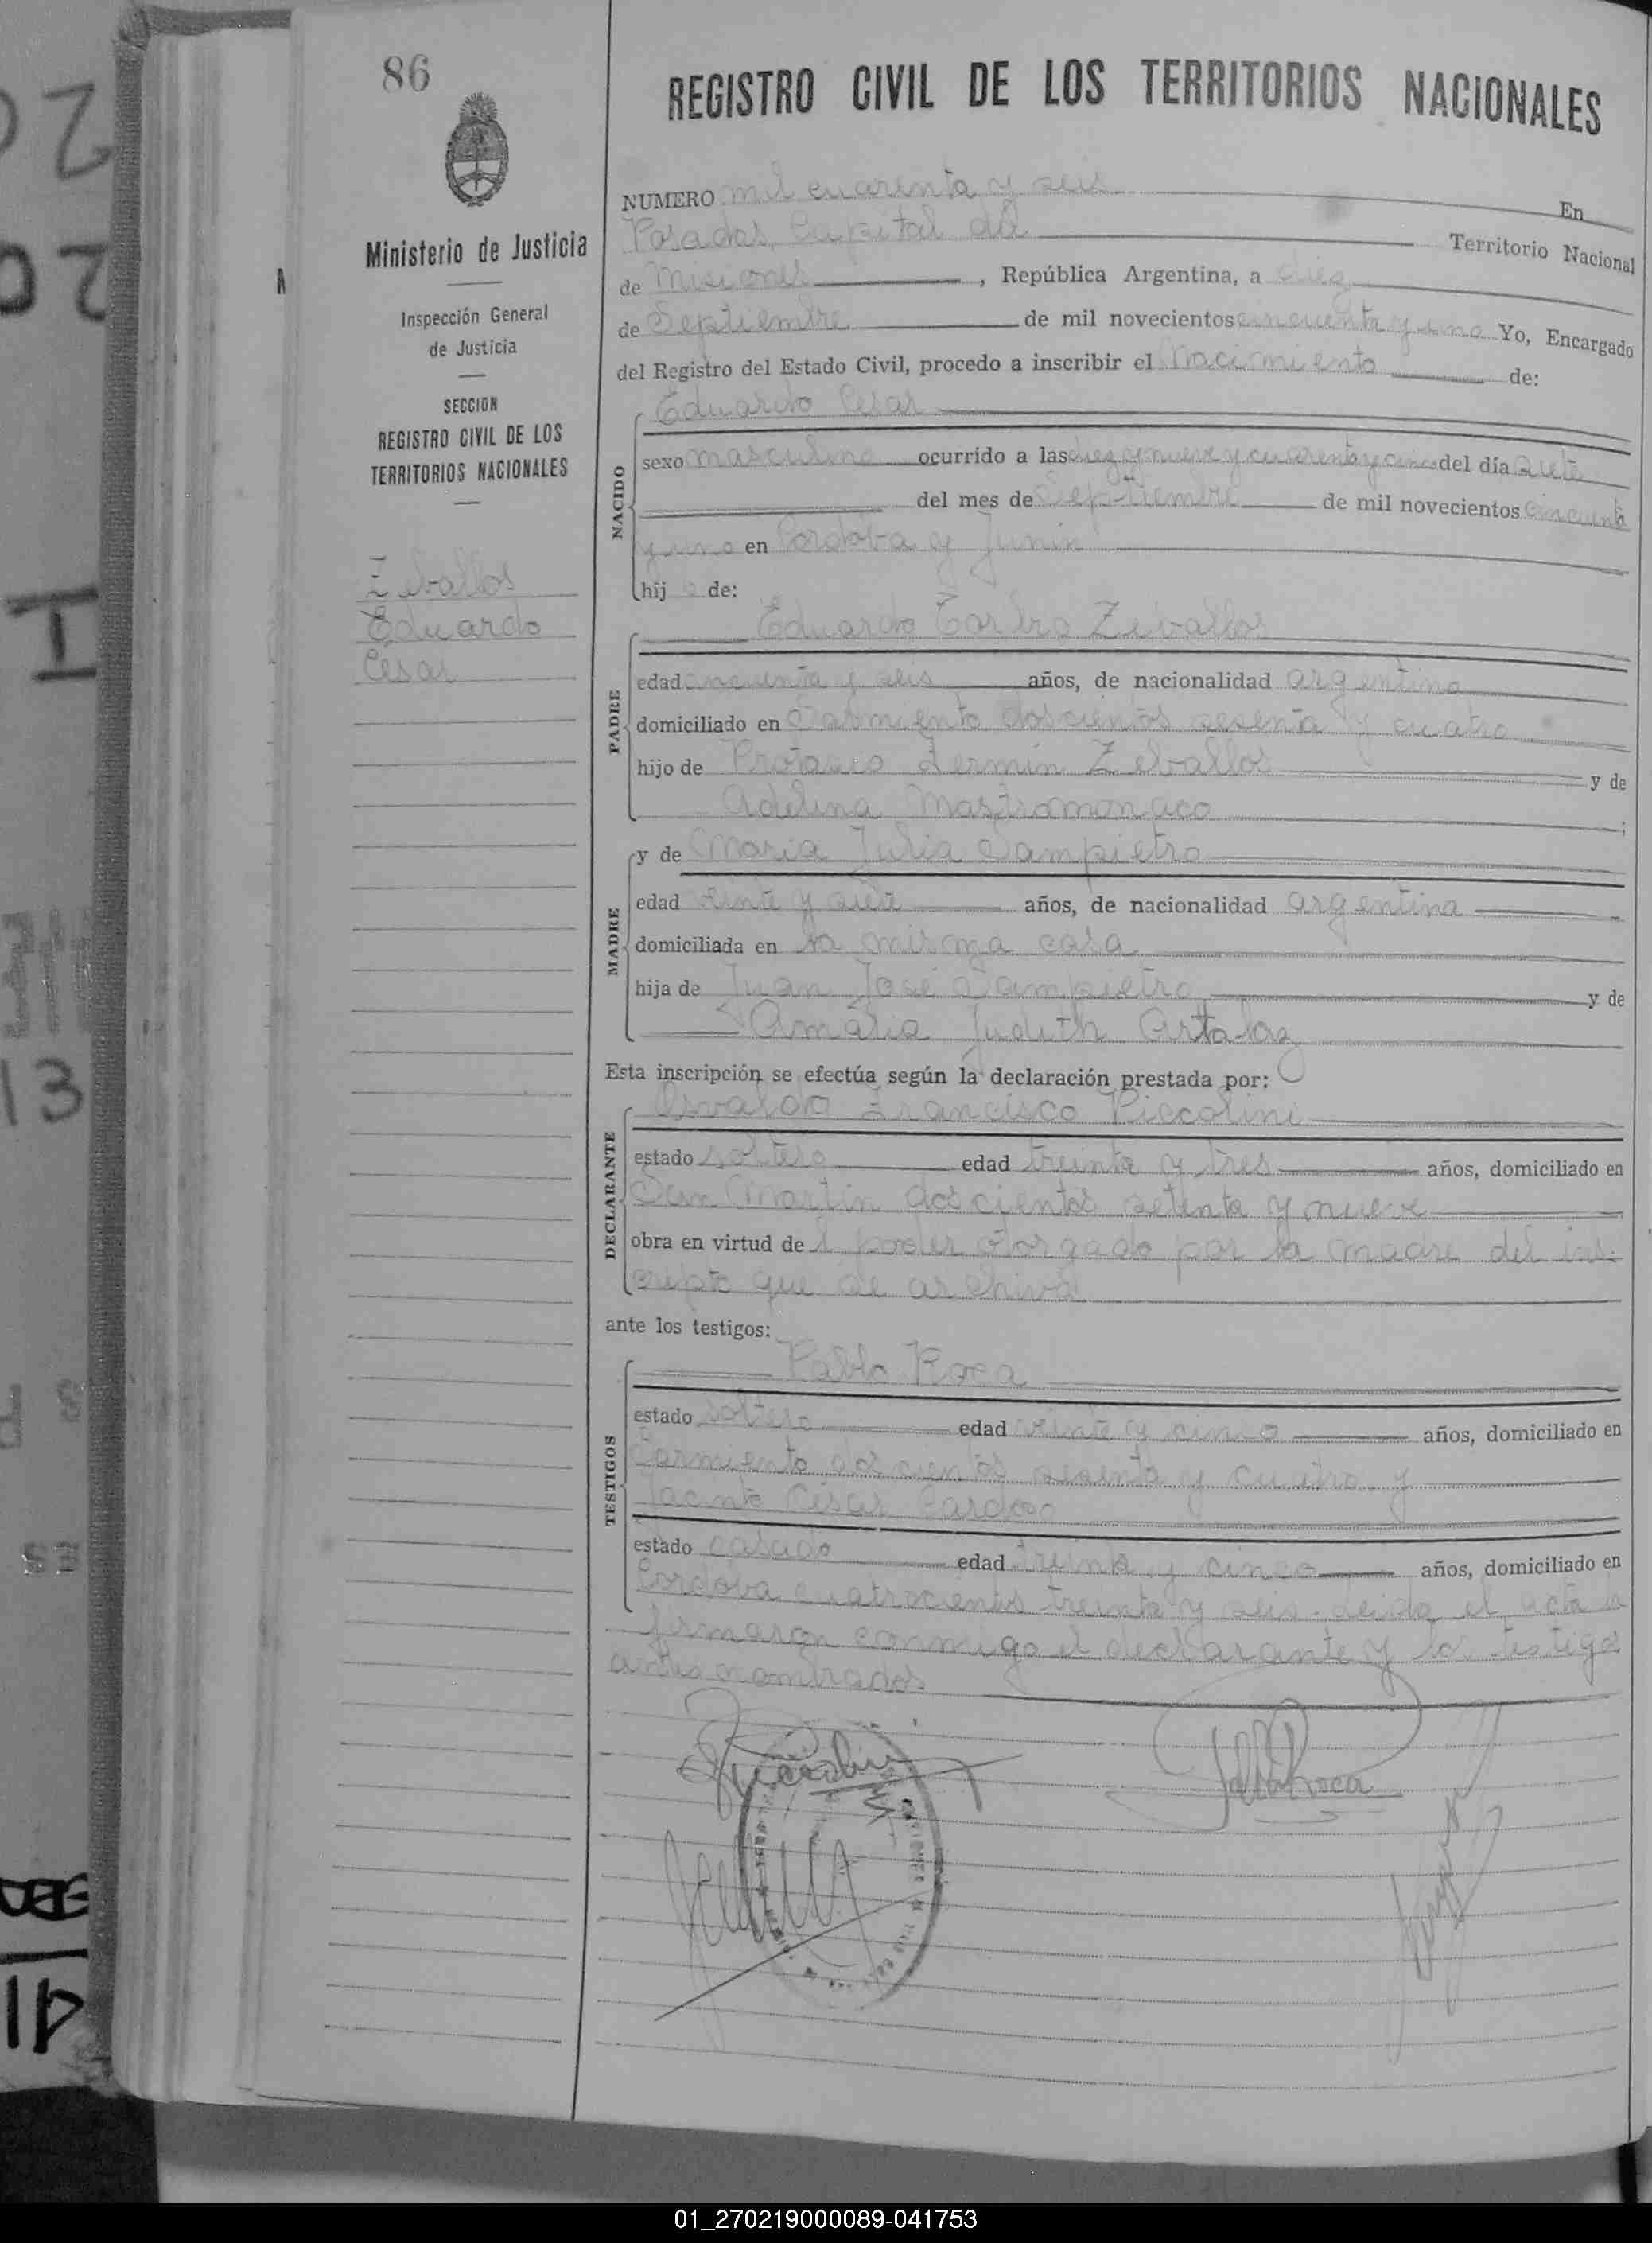 86
Ministerio de Justicia
Inspección General
de Justicia
SECCION
REGISTRO CIVIL DE LOS
TERRITORIOS NACIONALES
Zeballos
Eduardo
César
REGISTRO CIVIL DE LOS TERRITORIOS NACIONALES
NUMERO mil cuarenta y seis En
Posadas, Capital del Territorio Nacional
de Misiones, República Argentina, a diez
de Septiembre de mil novecientos cincuenta y uno Yo, Encargado
del Registro del Estado Civil, procedo a inscribir el Nacimiento de:
Eduardo César
NACIDO
sexo masculino ocurrido a las diez y nueve y cuarenta y cinco del día siete
del mes de Septiembre de mil novecientos cincuenta
y uno en Córdoba y Junín
hijo de:
Eduardo Zeballos
PADRE
edad cincuenta y seis años, de nacionalidad argentina
domiciliado en Sarmiento doscientos sesenta y cuatro
hijo de Protacio Fermín Zeballos y de
Adelina Mastromonaco;
y de María Julia Sampietro
MADRE
edad veinte y siete años, de nacionalidad argentina
domiciliada en la misma casa
hija de Juan José Sampietro y de
Amalia Judith Artalaz
Esta inscripción se efectúa según la declaración prestada por:
Osvaldo Francisco Piccolini
DECLARANTE
estado soltero edad treinta y tres años, domiciliado en
San Martín doscientos setenta y nueve
obra en virtud del poder otorgado por la madre del ins-
cripto que se archiva
ante los testigos:
Pablo Roca
TESTIGOS
estado soltero edad veinte y cinco años, domiciliado en
Sarmiento doscientos sesenta y cuatro y
Jacinto César Cardozo
estado casado edad treinta y cinco años, domiciliado en
Córdoba cuatrocientos treinta y seis. Leida el acta la
firmaron conmigo el declarante y los testigos
antes nombrados
01_270219000089-041753